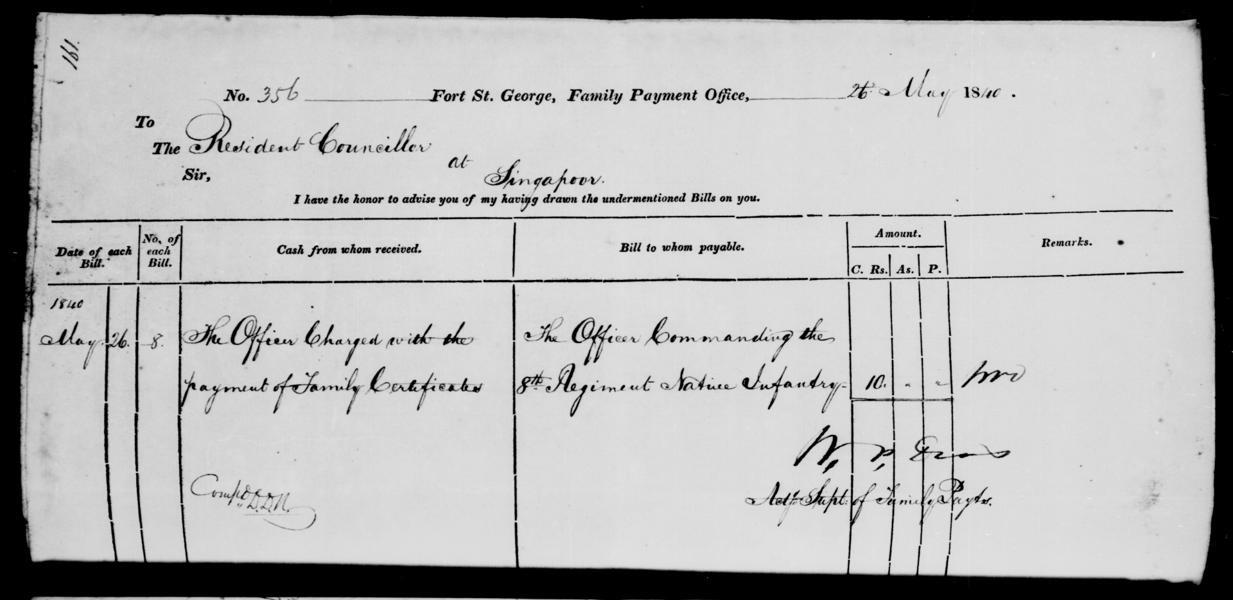 161.
No. 356 Fort St. George, Family Payment Office, 26 May 1840.
To
The Resident Councillor
at
Sir, Singapoor.
I have the honor to advise you of my having drawn the undermentioned Bills on you.
Date of each Bill. No. of each Bill. Cash from whom received. Bill to whom payable. Amount. Remarks.
C. Rs. As. P.
1840
May 26. 8. The Officer Charged with the The Officer Commanding the
payment of Family Certificates 8th Regiment Native Infantry 10. " "
W. P.
Compd. D.D.N.
Actg. Supt. of Family Paymts.